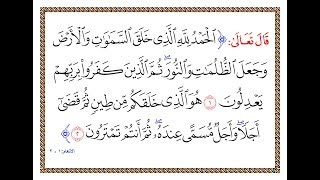 قَالَ تَعَالَىٰ: ﴿ الْحَمْدُ لِلَّهِ الَّذِي خَلَقَ السَّمَاوَاتِ وَالْأَرْضَ
وَجَعَلَ الظُّلُمَاتِ وَالنُّورَ ثُمَّ الَّذِينَ كَفَرُوا بِرَبِّهِمْ
يَعْدِلُونَ ١ هُوَ الَّذِي خَلَقَكُم مِّن طِينٍ ثُمَّ قَضَىٰ
أَجَلًا وَأَجَلٌ مُّسَمًّى عِندَهُ ثُمَّ أَنتُمْ تَمْتَرُونَ ٢ ﴾